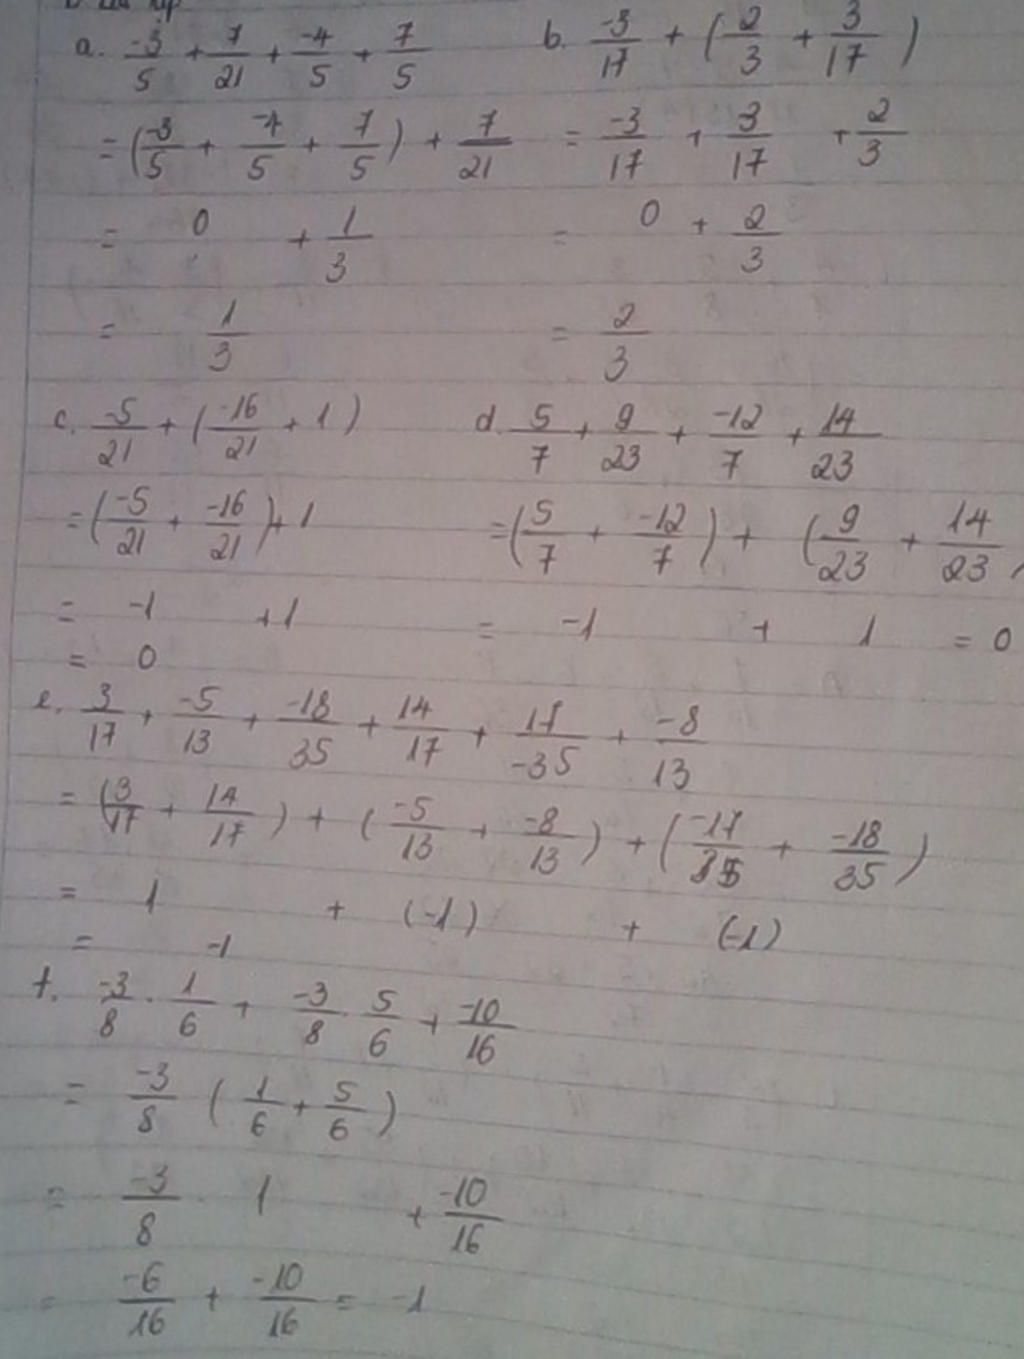 a. -3/5 + 7/21 + -4/5 + 7/5
= (-3/5 + -4/5 + 7/5) + 7/21
= 0 + 1/3
= 1/3
b. -3/17 + (2/3 + 3/17)
= -3/17 + 3/17 + 2/3
= 0 + 2/3
= 2/3
c. -5/21 + (-16/21 + 1)
= (-5/21 + -16/21) + 1
= -1 + 1
= 0
d. 5/7 + 9/23 + -12/7 + 14/23
= (5/7 + -12/7) + (9/23 + 14/23)
= -1 + 1 = 0
e. 3/17 + -5/13 + -18/35 + 14/17 + 17/-35 + -8/13
= (3/17 + 14/17) + (-5/13 + -8/13) + (-17/35 + -18/35)
= 1 + (-1) + (-1)
= -1
f. -3/8 . 1/6 + -3/8 . 5/6 + -10/16
= -3/8 (1/6 + 5/6)
= -3/8 . 1 + -10/16
= -6/16 + -10/16 = -1